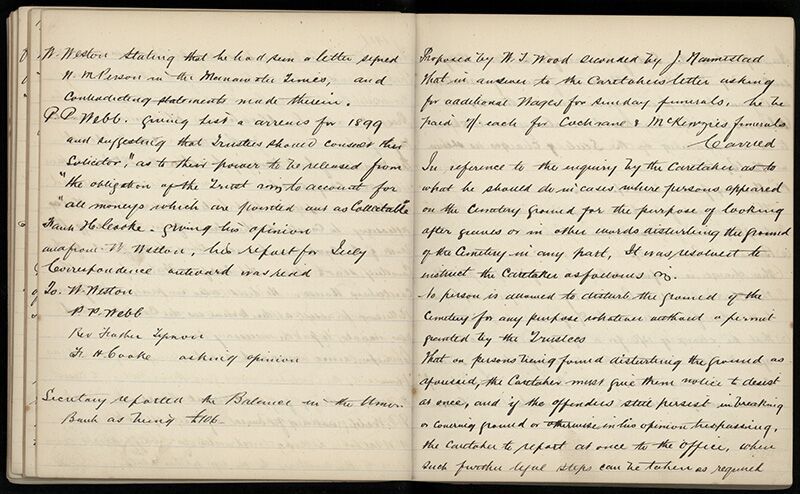 W. Weston stating that he had seen a letter signed
N. M Person in the Manawatu Times, and
Contradicting statements made therein.
P. P. Webb. giving list of arrears for 1899
and suggesting that Trustees should consult their
Solicitor, "as to their power to be released from
"the obligation of the Trust to account for
"all moneys which are pointed out as Collectable
Frank H. Cooke - giving his opinion
and from W. Weston, his report for July
Correspondence outward was read
To. W. Weston
P. P. Webb
Rev Father
F. H. Cooke asking opinion
Secretary reported the Balance in the Union
Bank as being £106.
Proposed by W. T. Wood seconded by J.
That in answer to the Caretakers letter asking
for additional Wages for Sunday funerals, he be
paid each for Cochrane & McKenzies funerals
Carried
In reference to the inquiry by the Caretaker as to
what he should do in cases where persons appeared
on the Cemetery ground for the purpose of looking
after graves or in other words disturbing the ground
of the Cemetery in any part, It was resolved to
instruct the Caretaker as follows
No person is allowed to disturb the ground of the
Cemetery for any purpose whatever without a permit
granted by the Trustees
That on persons being found disturbing the ground as
aforesaid, the Caretaker must give them notice to desist
at once, and if the offenders still persist in breaking
or covering ground or otherwise in his opinion trespassing,
the Caretaker to report at once to the office, when
such further legal steps can be taken as required